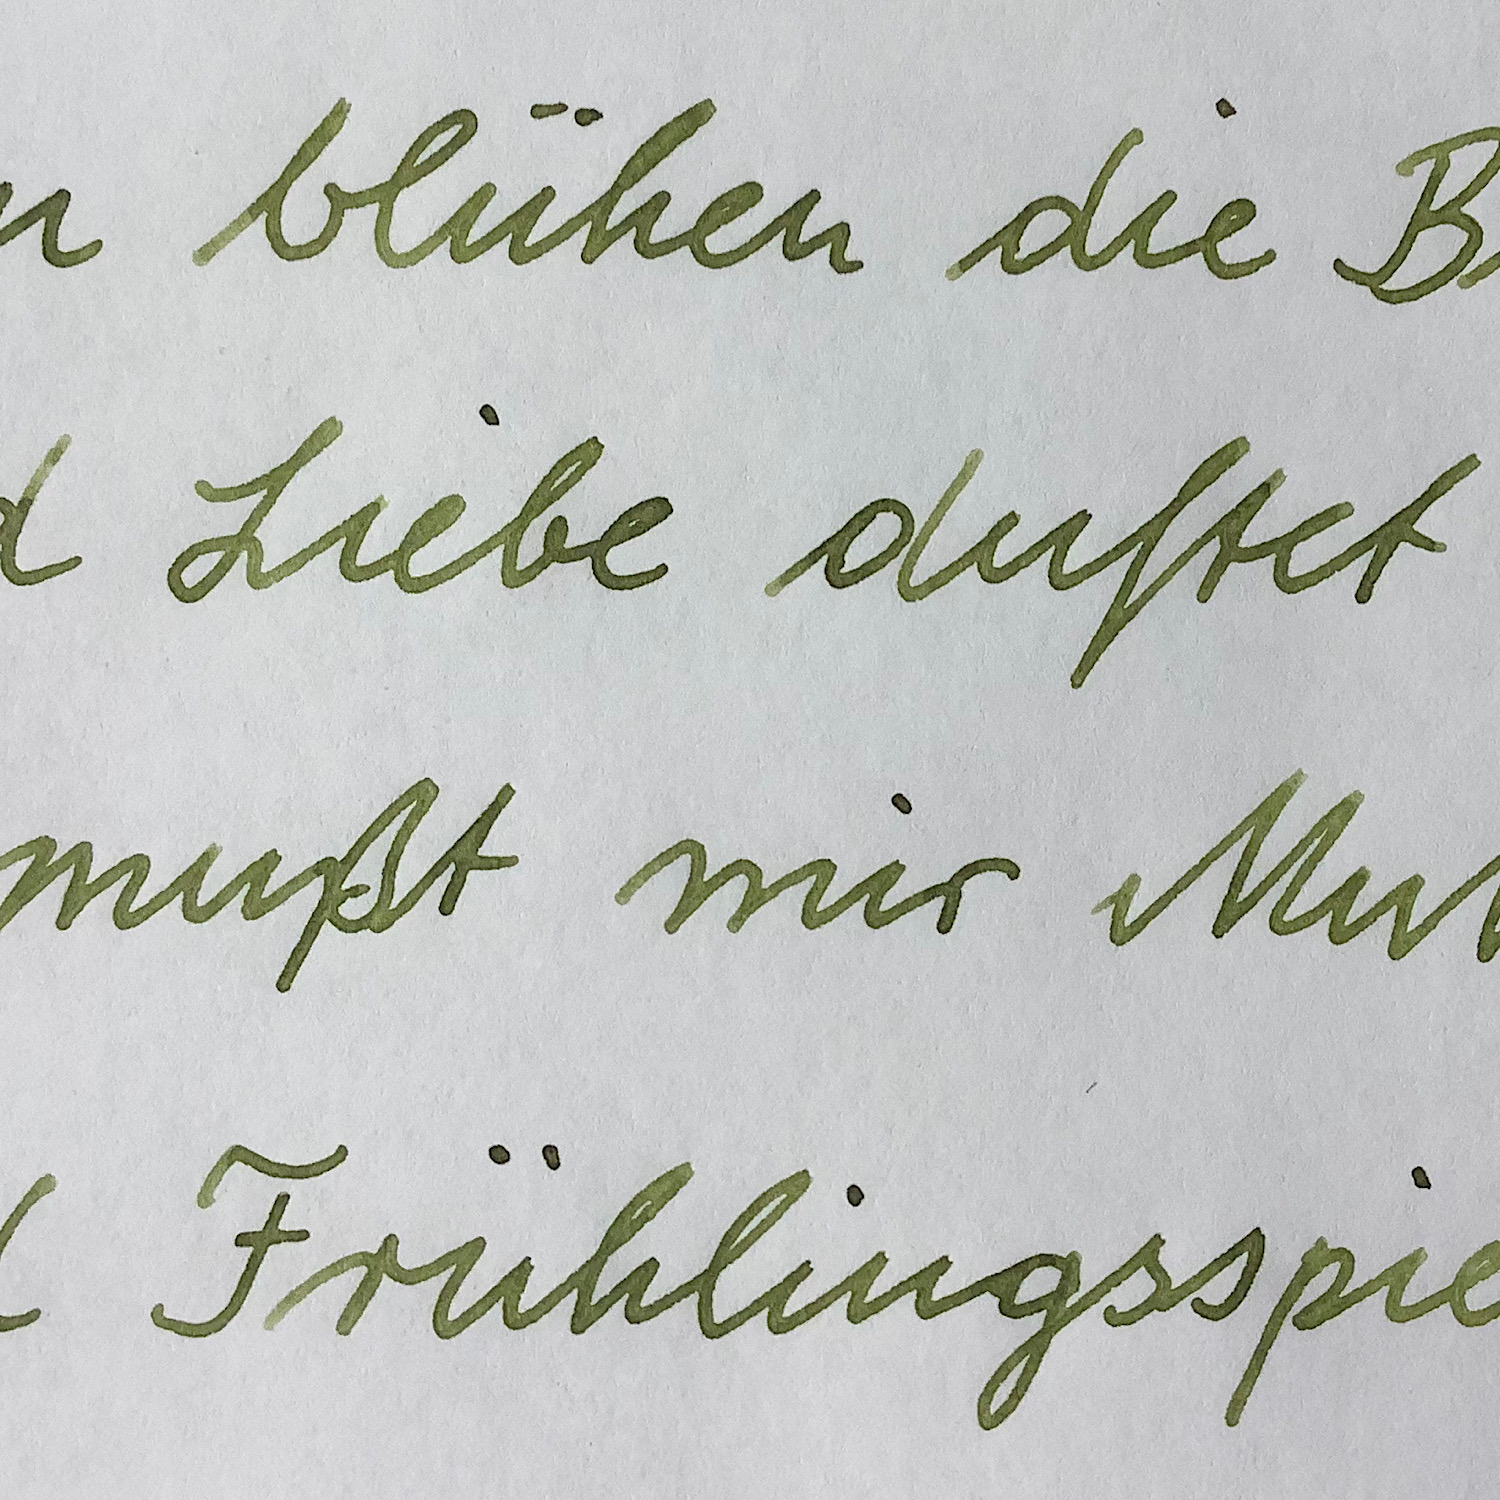 blühen die
Liebe duftet
mußt mir
Frühlingsspie